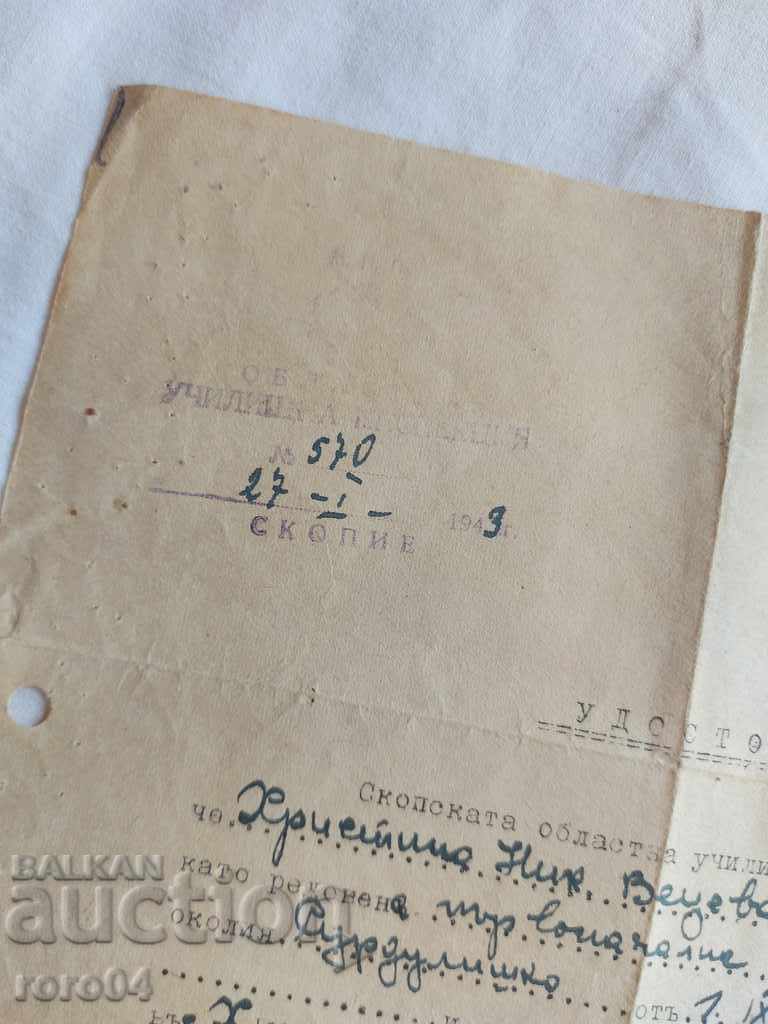 ОБ
УЧИЛИЩНА ИНСПЕКЦИЯ
№ 570
27 - I - 1943 г.
СКОПИЕ
УДОСТО
Скопската областна учили
че Христина Ник. Венева
като редовена първоначална
околия Сурдулишка
отъ 1. IX
въ
BALKAN
auction
roro04